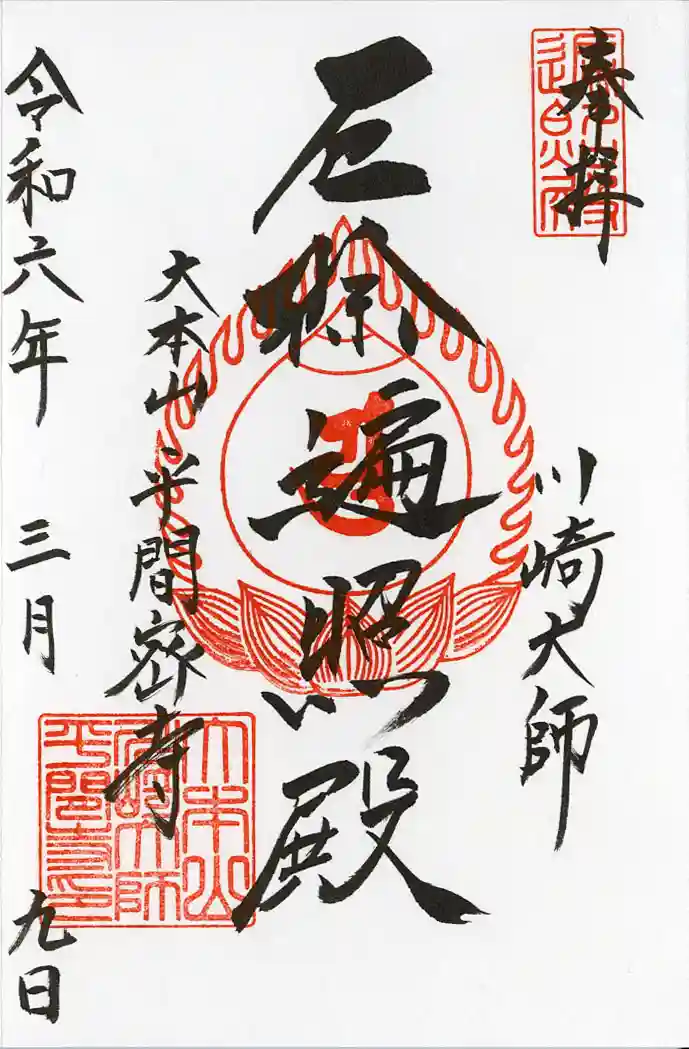 奉拝
遍照殿
川崎大師
厄除遍照殿
大本山 平間密寺
大本山
川崎大師
平間寺印
令和六年 三月 九日